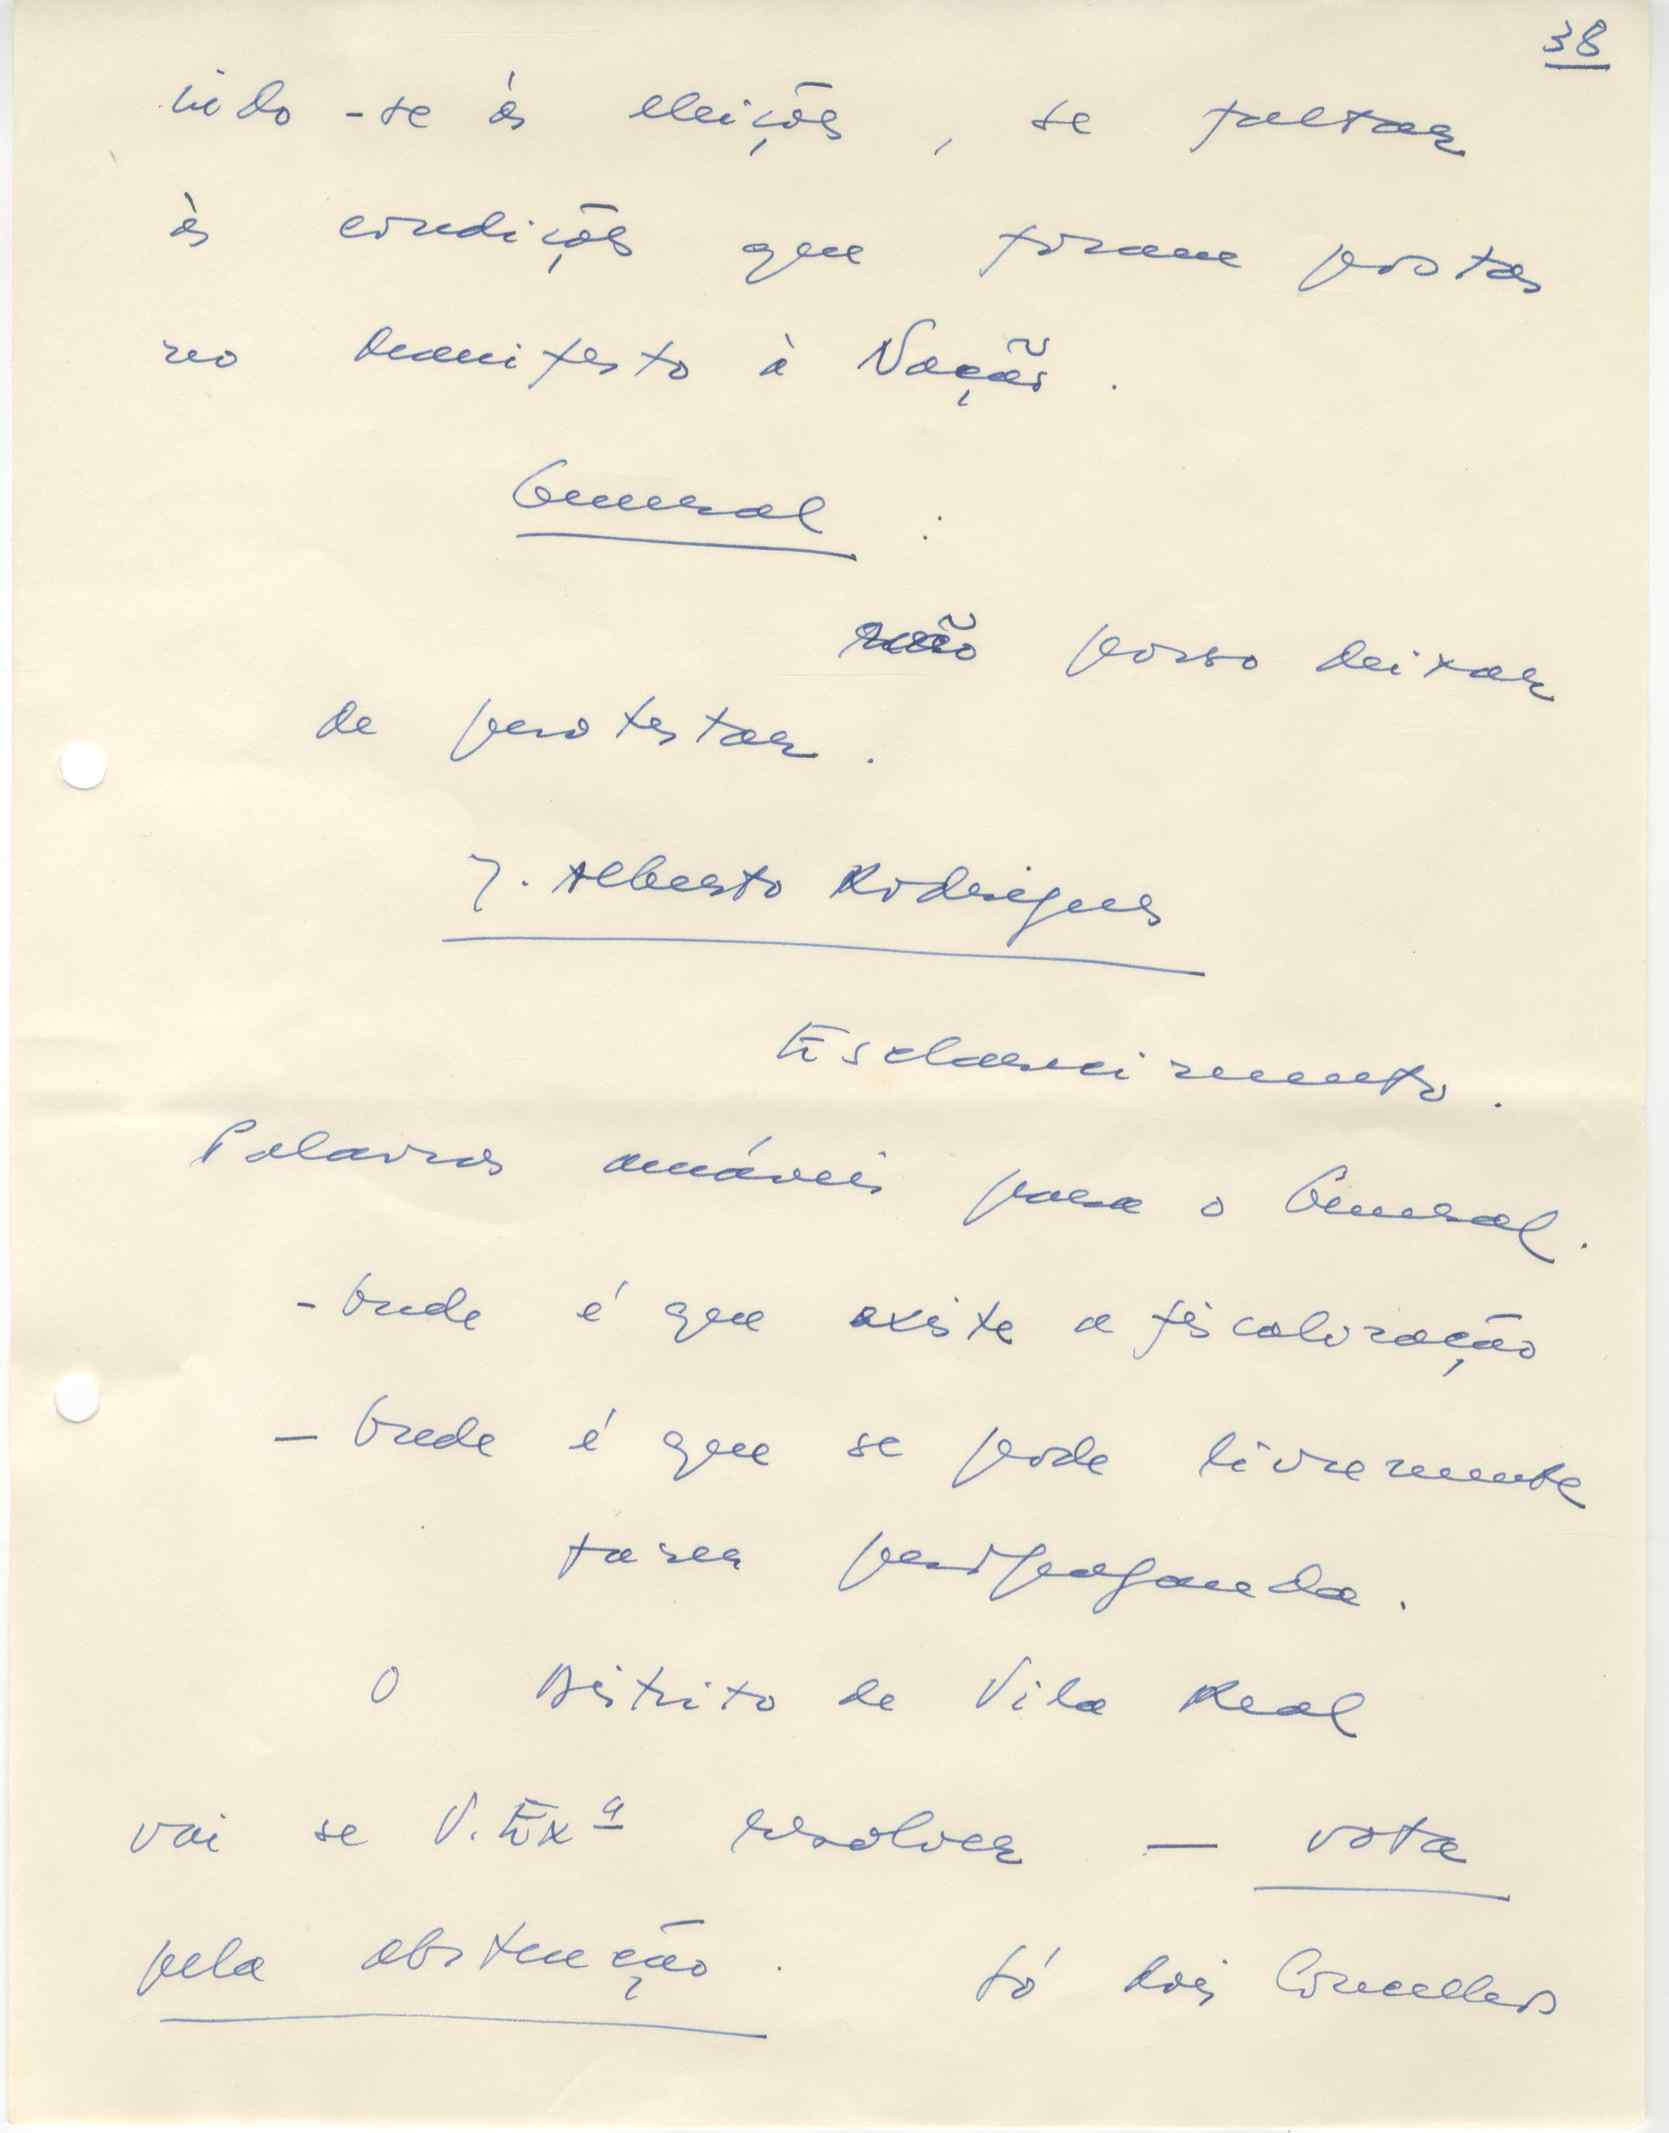 38
indo-se às eleições, se faltar
às condições que foram postas
no manifesto à Nação.
General:
não posso deixar
de protestar.
J. Alberto Rodrigues
Esclarecimento.
Palavras amáveis para o General.
- Onde é que existe a fiscalização
- Onde é que se pode livremente
fazer propaganda.
O Distrito de Vila Real
vai se V. Exª resolver — vota
pela abstenção. Só dois Concelhos